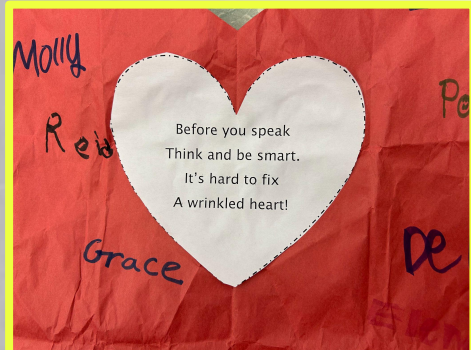 Molly
Reid
Before you speak
Think and be smart.
It's hard to fix
A wrinkled heart!
Grace
De